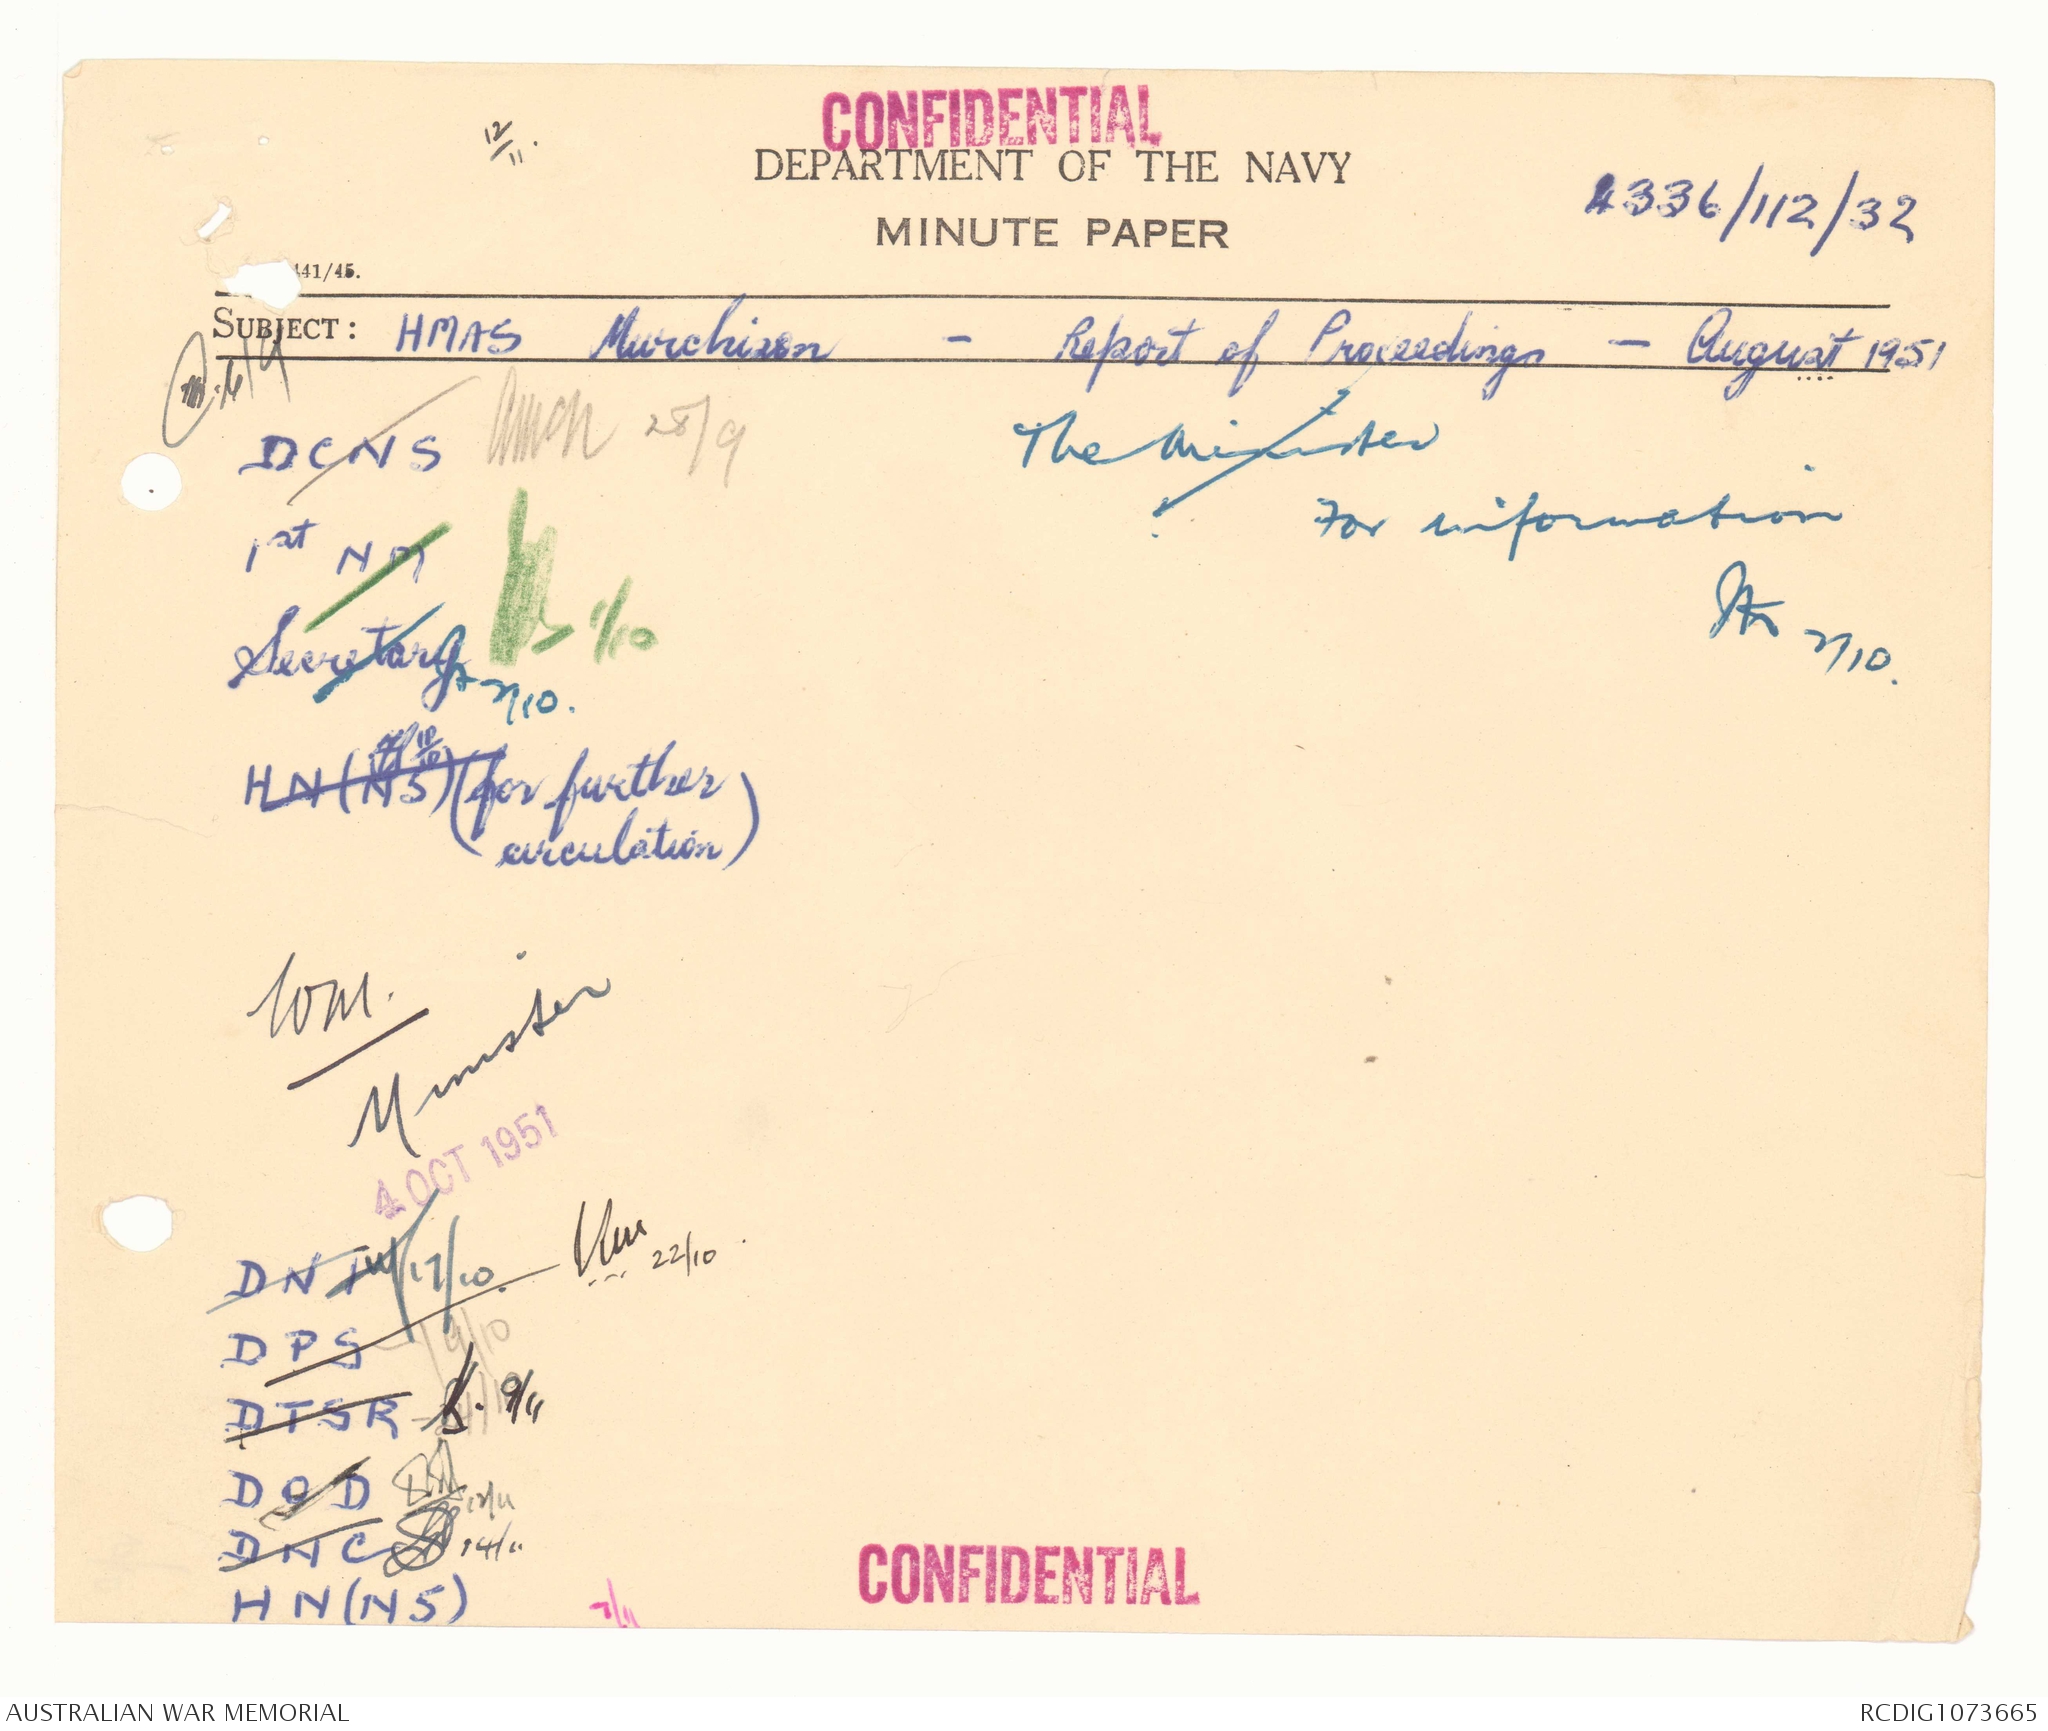 12/11.
CONFIDENTIAL
DEPARTMENT OF THE NAVY
MINUTE PAPER
1336/112/32
441/45.
SUBJECT: HMAS Murchison - Report of Proceedings - August 1951
DCNS 28/9
The Minister
For information
2/10.
1st NM
1/10
Secretary
2/10.
HN(NS) (for further
circulation)
Minister
4 OCT 1951
DNI 17/10
22/10
DPS 19/10
DTSR 9/11
DOD 12/11
DNC 14/11
HN(NS)
7/11
CONFIDENTIAL
AUSTRALIAN WAR MEMORIAL
RCDIG1073665